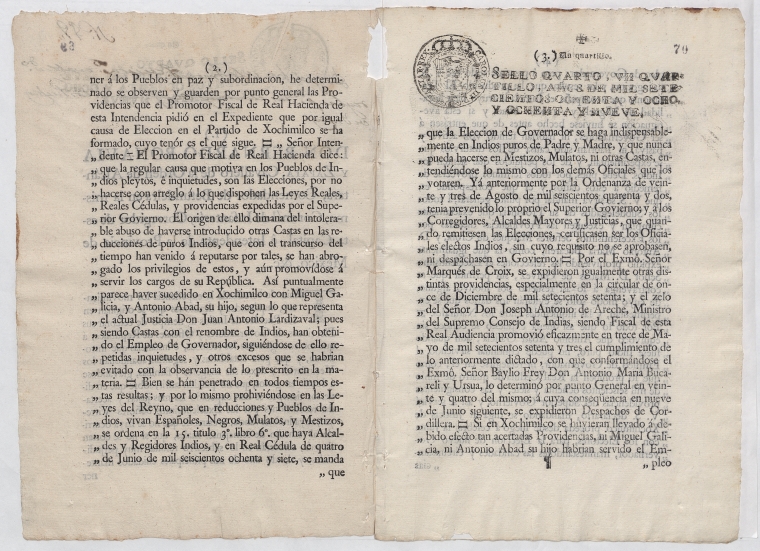 (2.)
ner á los Pueblos en paz y subordinacion, he determi-
nado se observen y guarden por punto general las Pro-
videncias que el Promotor Fiscal de Real Hacienda de
esta Intendencia pidió en el Expediente que por igual
causa de Eleccion en el Partido de Xochimilco se ha
formado, cuyo tenór es el que sigue. = „ Señor Inten-
„ dente = El Promotor Fiscal de Real Hacienda dice:
„ que la regular causa que motiva en los Pueblos de In-
„ dios pleytos, é inquietudes, son las Elecciones, por no
„ hacerse con arreglo á lo que disponen las Leyes Reales,
„ Reales Cédulas, y providencias expedidas por el Supe-
„ rior Govierno. El origen de ello dimana del intolera-
„ ble abuso de haverse introducido otras Castas en las re-
„ ducciones de puros Indios, que con el transcurso del
„ tiempo han venido á reputarse por tales, se han abro-
„ gado los privilegios de estos, y aún promovídose á
„ servir los cargos de su República. Así puntualmente
„ parece haver sucedido en Xochimilco con Miguel Ga-
„ licia, y Antonio Abad, su hijo, segun lo que representa
„ el actual Justicia Don Juan Antonio Lardizaval; pues
„ siendo Castas con el renombre de Indios, han obteni-
„ do el Empleo de Governador, siguiéndose de ello re-
„ petidas inquietudes, y otros excesos que se habrian
„ evitado con la observancia de lo prescrito en la ma-
„ teria. = Bien se hán penetrado en todos tiempos es-
„ tas resultas; y por lo mismo prohiviéndose en las Le-
„ yes del Reyno, que en reducciones y Pueblos de In-
„ dios, vivan Españoles, Negros, Mulatos, y Mestizos,
„ se ordena en la 15. titulo 3º. libro 6º. que haya Alcal-
„ des y Regidores Indios, y en Real Cédula de quatro
„ de Junio de mil seiscientos ochenta y siete, se manda
„ que
70
(3.) Un quartillo.
SELLO QVARTO, VN QVAR-
TILLO, AÑOS DE MIL SETE-
CIENTOS OCHENTA Y OCHO,
Y OCHENTA Y NVEVE.
„ que la Eleccion de Governador se haga indispensable-
„ mente en Indios puros de Padre y Madre, y que nunca
„ pueda hacerse en Mestizos, Mulatos, ni otras Castas, en-
„ tendiéndose lo mismo con los demás Oficiales que los
„ votaren. Yá anteriormente por la Ordenanza de vein-
„ te y tres de Agosto de mil seiscientos quarenta y dos,
„ tenia prevenido lo proprio el Superior Govierno; y á los
„ Corregidores, Alcaldes Mayores y Justicias, que quan-
„ do remitiesen las Elecciones, certificasen ser los Oficia-
„ les electos Indios, sin cuyo requisito no se aprobasen,
„ ni despachasen en Govierno. = Por el Exmô. Señor
„ Marqués de Croix, se expidieron igualmente otras dis-
„ tintas providencias, especialmente en la circular de on-
„ ce de Diciembre de mil setecientos setenta; y el zelo
„ del Señor Don Joseph Antonio de Areche, Ministro
„ del Supremo Consejo de Indias, siendo Fiscal de esta
„ Real Audiencia promovió eficazmente en trece de Ma-
„ yo de mil setecientos setenta y tres el cumplimiento de
„ lo anteriormente dictado, con que conformándose el
„ Exmô. Señor Baylio Frey Don Antonio Maria Buca-
„ reli y Ursua, lo determinó por punto General en vein-
„ te y quatro del mismo; á cuya conseqüencia en nueve
„ de Junio siguiente, se expidieron Despachos de Cor-
„ dillera. = Si en Xochimilco se huvieran llevado á de-
„ bido efecto tan acertadas Providencias, ni Miguel Gali-
„ cia, ni Antonio Abad su hijo habrian servido el Em-
„ pleo